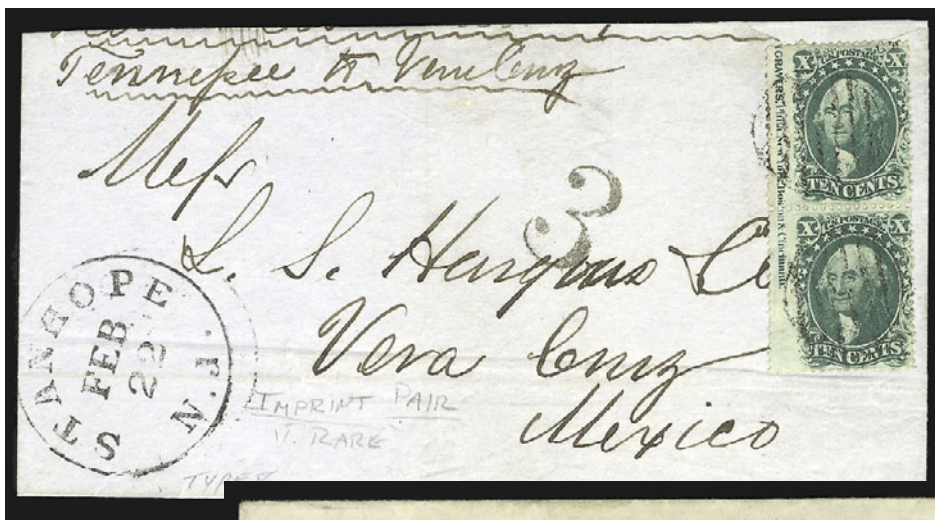 Tennessee to Vera Cruz
Mess
L. S. Hargous Co
Vera Cruz
Mexico
3
STANHOPE N.J.
FEB
22
IMPRINT PAIR
V. RARE
TYPE
X U.S. POSTAGE X
TEN CENTS
X U.S. POSTAGE X
TEN CENTS